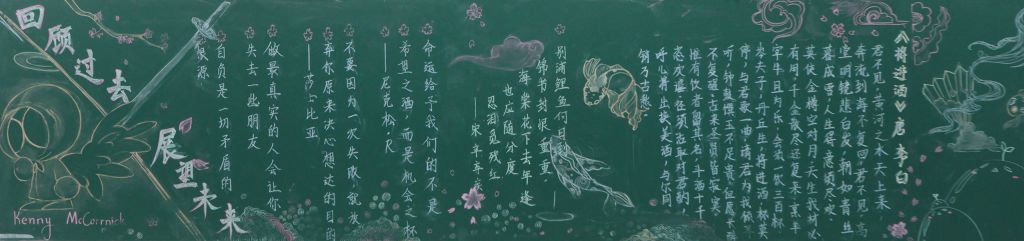 《将进酒》唐·李白
君不见,黄河之水天上来,
奔流到海不复回。君不见,高
堂明镜悲白发,朝如青丝
暮成雪。人生得意须尽欢,
莫使金樽空对月。天生我材必
有用,千金散尽还复来。烹羊
宰牛且为乐,会须一饮三百杯。
岑夫子,丹丘生,将进酒,杯莫
停。与君歌一曲,请君为我倾耳
听。钟鼓馔玉不足贵,但愿长醉
不复醒。古来圣贤皆寂寞,
惟有饮者留其名。
呼儿将出换美酒,与尔同
销万古愁。
别浦鲤鱼何日到,
锦书封恨重重,
海棠花下去年逢
也应随分瘦
忍泪觅残红
——宋·辛弃疾
命运给予我们的不是
失望之酒,而是机会之杯
——尼克松·R
不要因为一次失败,就放
弃你原来决心想达的目的
——莎士比亚
做最真实的人会让你
失去一些朋友
自负是一切矛盾的
根源
回顾过去
展望未来
Kenny McCormick